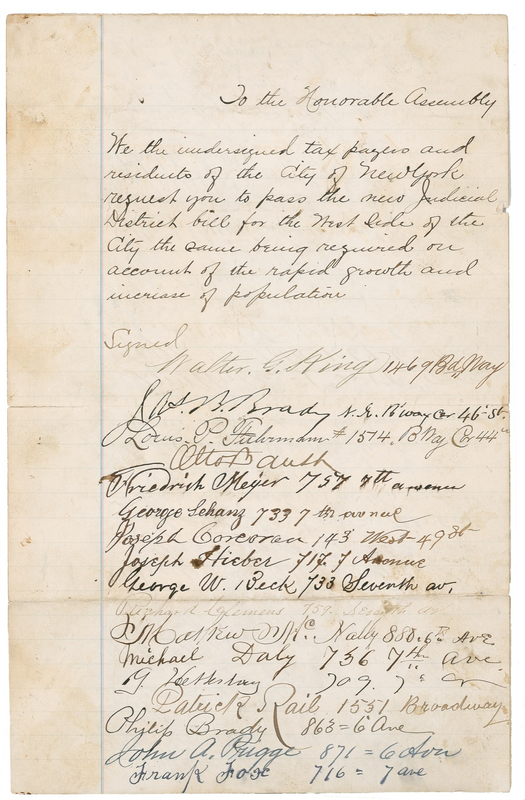 To the Honorable Assembly
We the undersigned tax payers and
residents of the City of New York
request you to pass the new Judicial
District bill for the West Side of the
City the same being required on
account of the rapid growth and
increase of population
Signed
Walter. G. King 1469 Bd,Way
Jas B. Brady N.E. B'way Cor 46th St.
Louis. P. Fuhrmann # 1514. B Way Cor 44th
Otto
Friedrich Meyer 757 7th avenue
George Schanz 733 7th avenue
Joseph Corcoran 143 West 49 St
Joseph Hieber 717. 7 Avenue
George W. Beck 733 Seventh av.
Richard Clemens 751 Seventh av
Mathew Mc. Nally 880. 6th Ave
Michael Daly 736 7th Ave.
709. 7th
Patrick Rail 1551 Broadway
Philip Brady 863 = 6 Ave
John A. Rugge 871 = 6 Ave
Frank Fox 716 = 7 ave